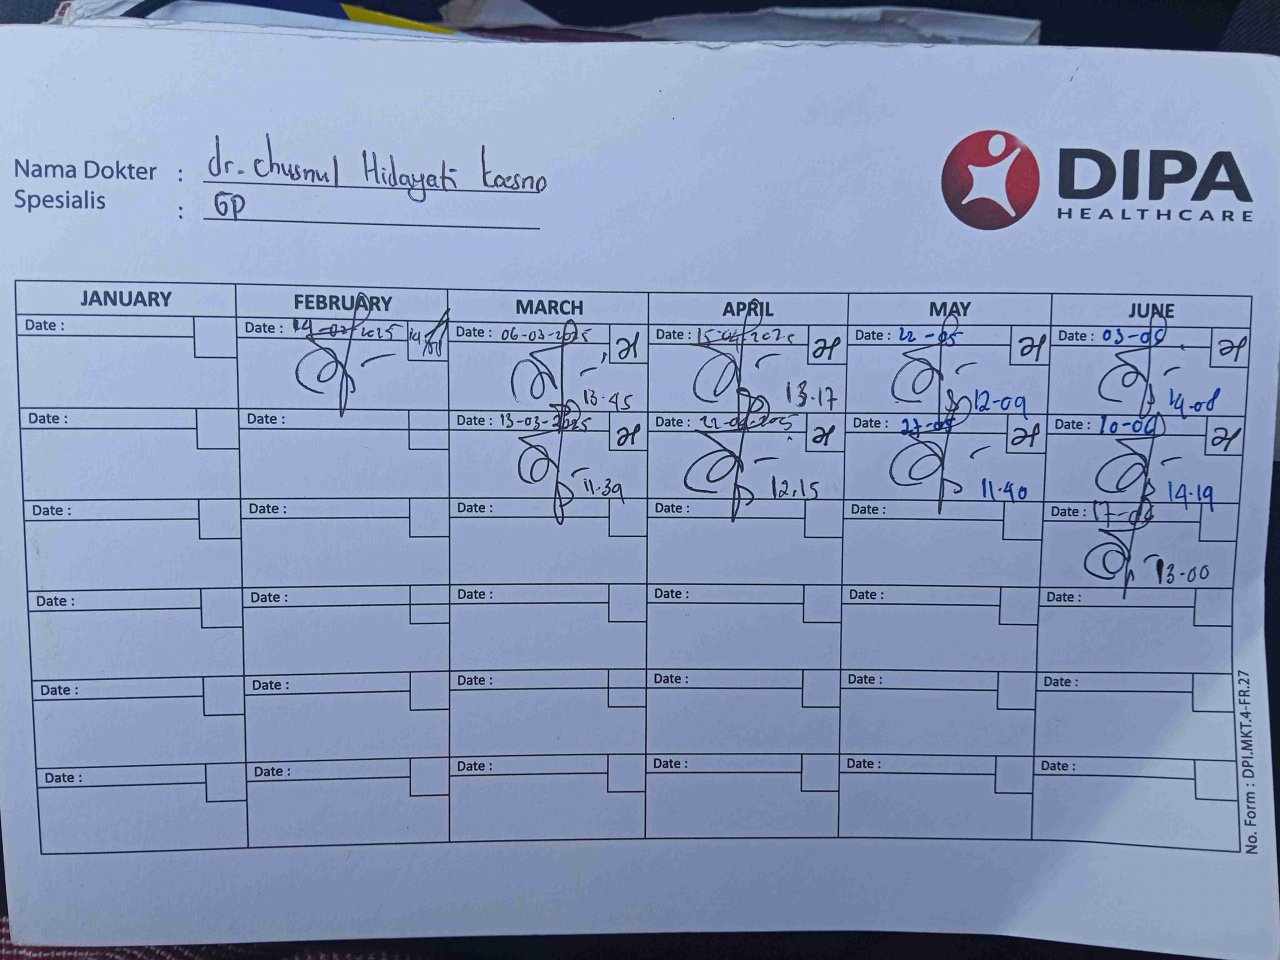 Nama Dokter : dr. Chusnul Hidayati Koesno
Spesialis : GP
DIPA
HEALTHCARE
JANUARY FEBRUARY MARCH APRIL MAY JUNE
Date : Date : 14-02-2025 Date : 06-03-2025 Date : 15-04-2025 Date : 22-05 Date : 03-06
13.45 13.17 12-09 14.08
Date : Date : Date : 13-03-2025 Date : 22-04-2025 Date : 27-05 Date : 10-06
11.39 12.15 11.40 14.19
Date : Date : Date : Date : Date : Date : 17-06
13-00
Date : Date : Date : Date : Date : Date :
Date : Date : Date : Date : Date : Date :
Date : Date : Date : Date : Date : Date :
No. Form : DPI.MKT.4-FR.27